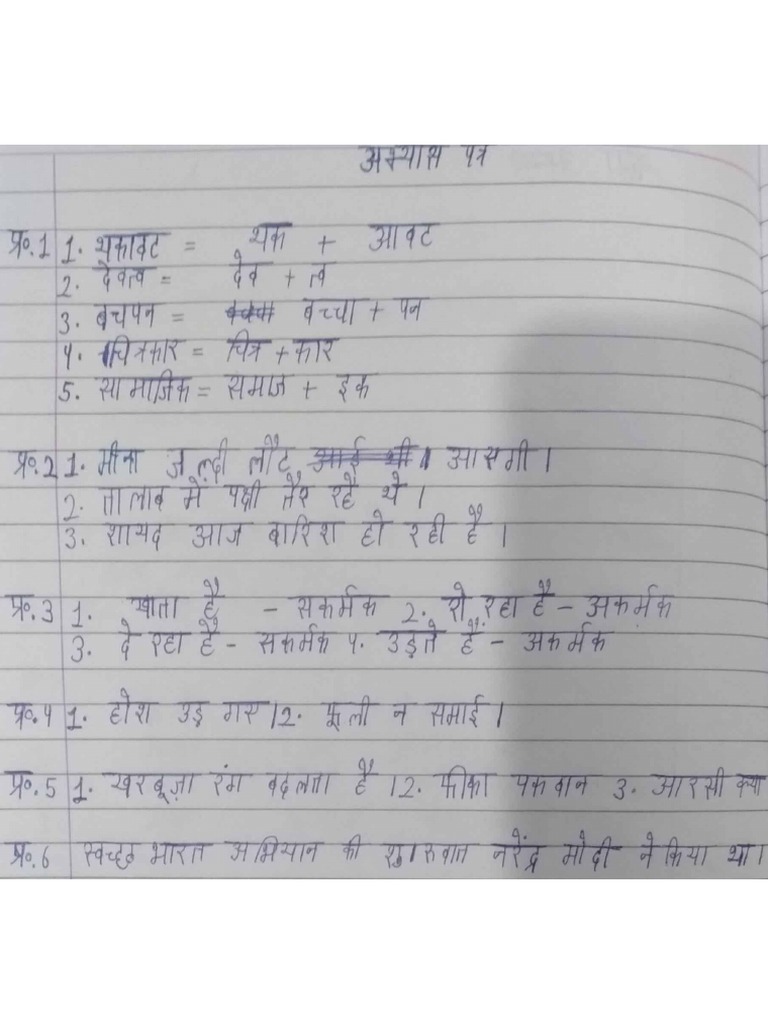 अभ्यास पत्र
प्र॰1 1. थकावट = थक + आवट
2. देवत्व = देव + त्व
3. बचपन = बच्चा + पन
4. चित्रकार = चित्र + कार
5. सामाजिक = समाज + इक
प्र॰2 1. मीना जल्दी लौट आई थी। आसगी।
2. तालाब में पक्षी तैर रहे थे।
3. शायद आज बारिश हो रही है।
प्र॰3 1. खाता है - सकर्मक 2. रो रहा है - अकर्मक
3. दे रहा है - सकर्मक 4. उड़ते हैं - अकर्मक
प्र॰4 1. होश उड़ गस। 2. फूली न समाई।
प्र॰5 1. खरबूज़ा रंग बदलता है। 2. फीका पकवान 3. आरसी क्या
प्र॰6 स्वच्छ भारत अभियान की शुरूवात नरेंद्र मोदी ने किया था।